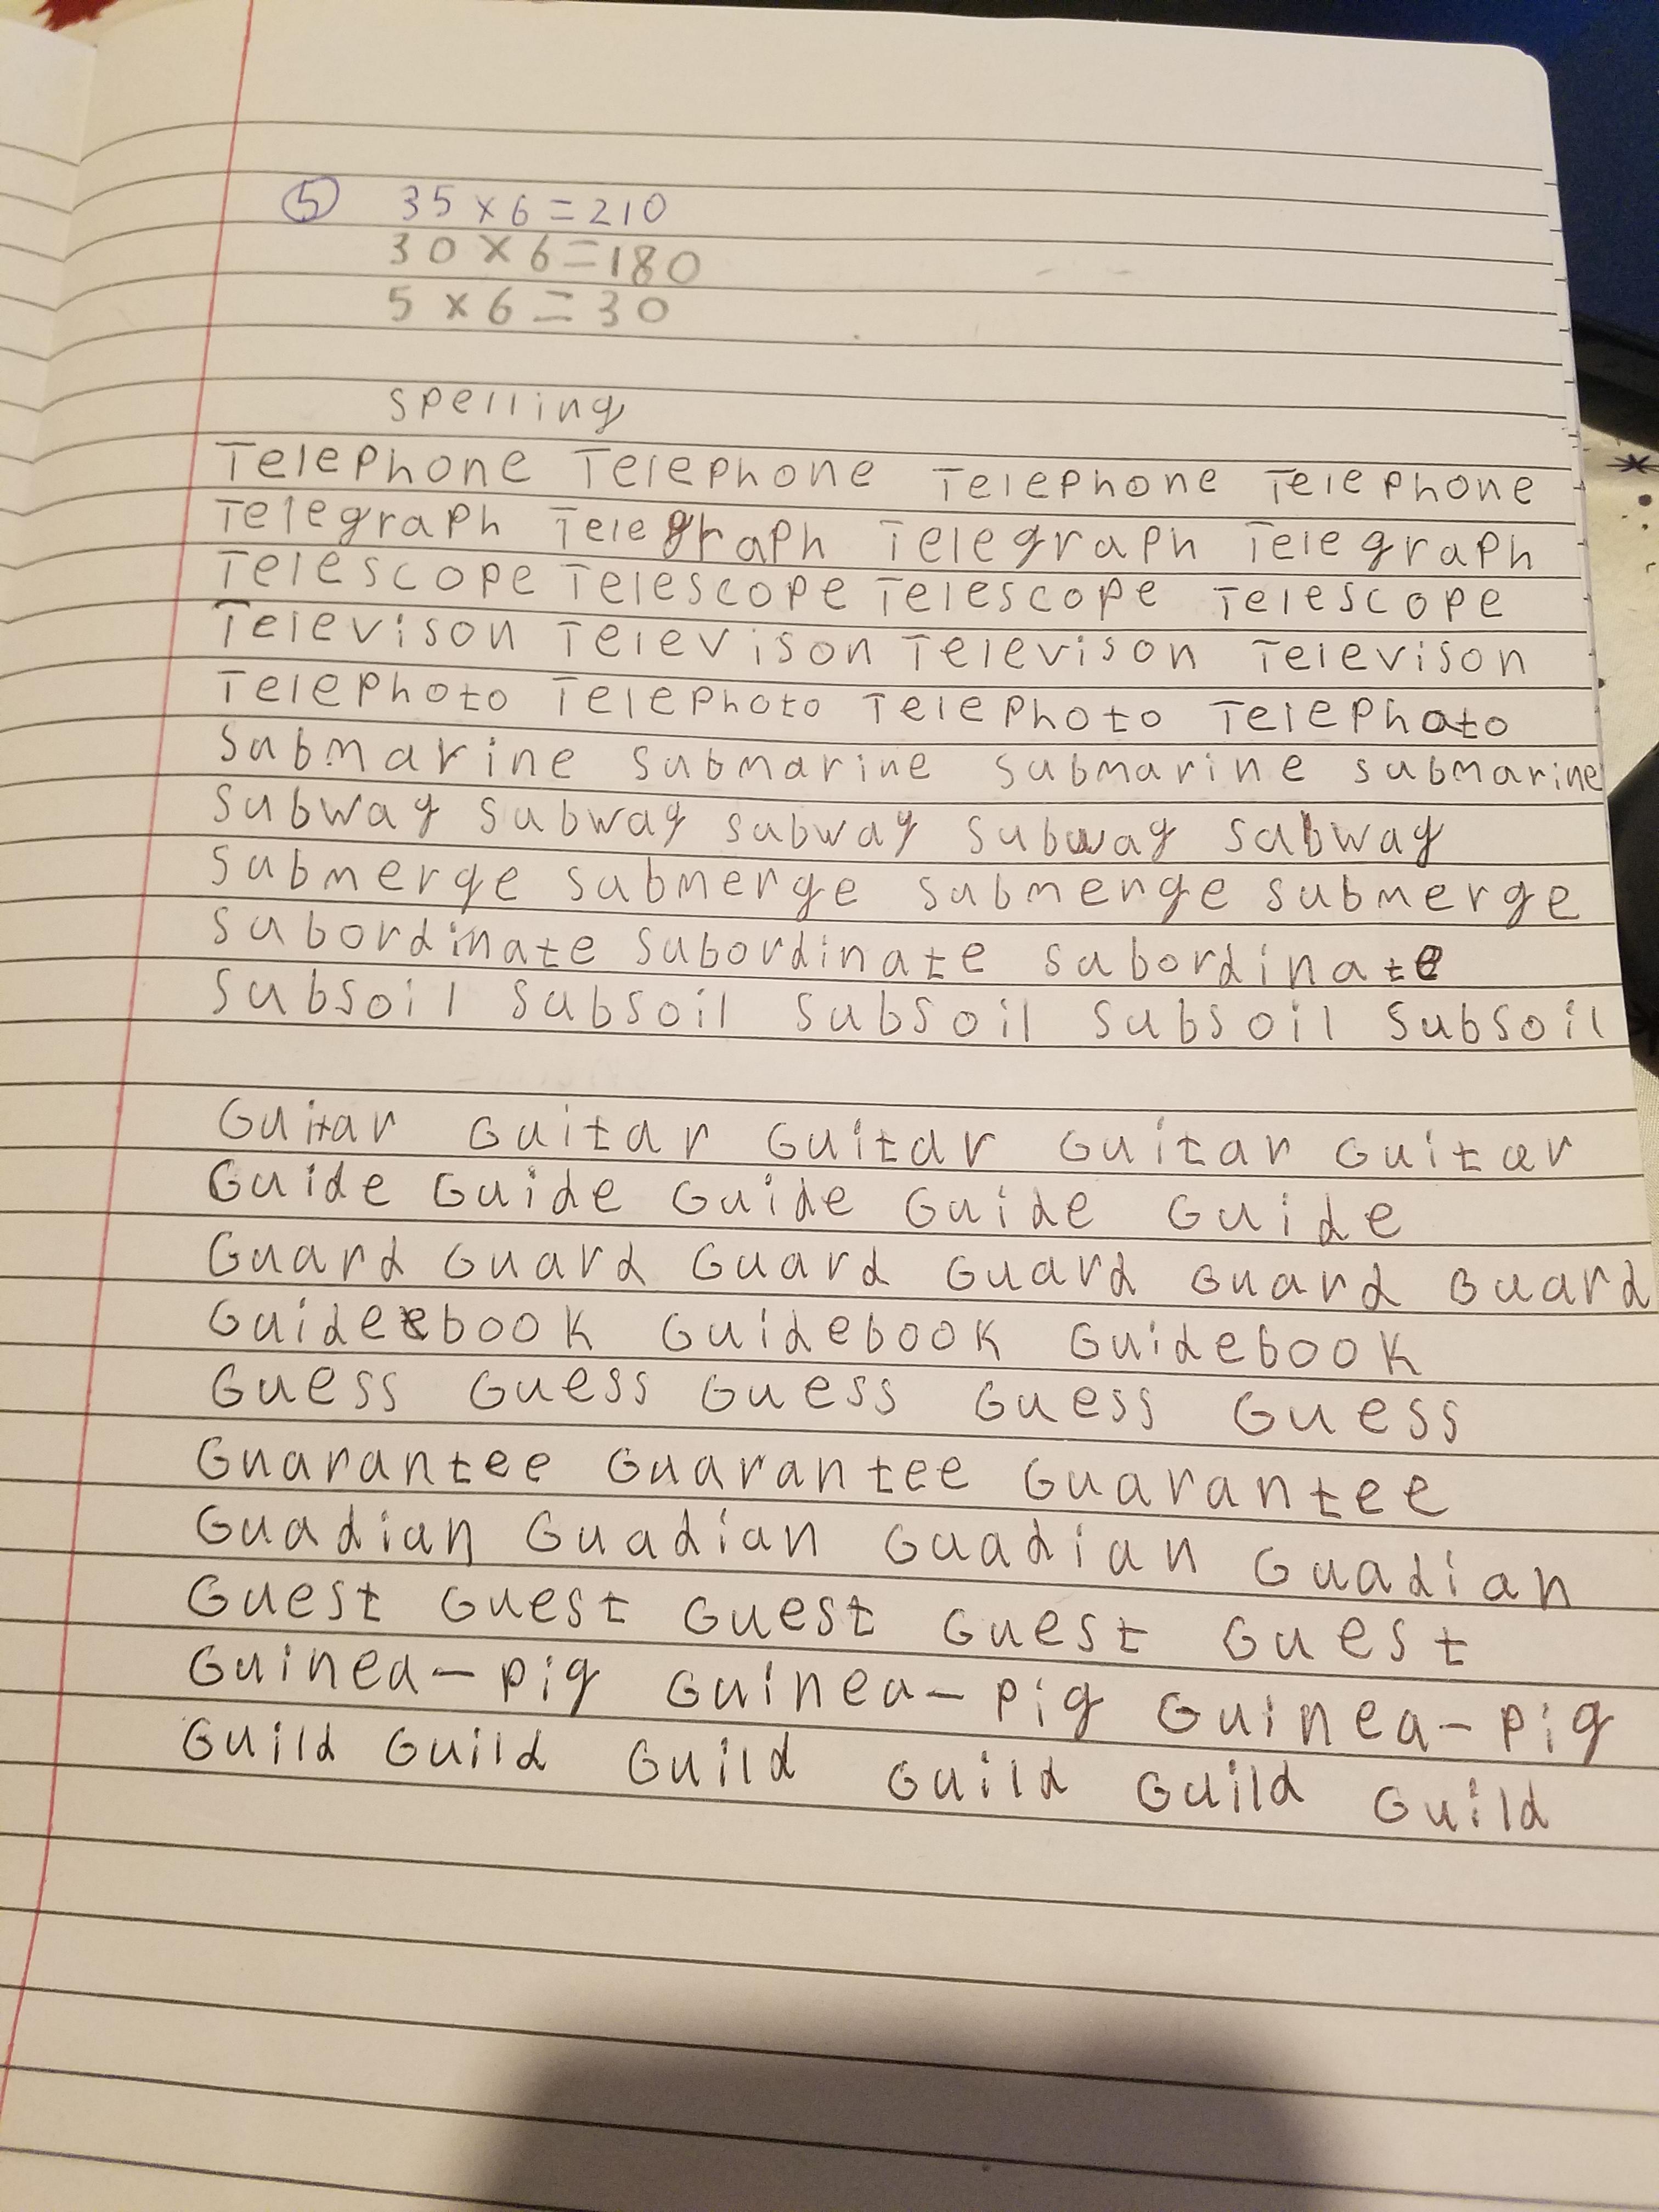 5 35 x 6 = 210
30 x 6 = 180
5 x 6 = 30
spelling
Telephone Telephone Telephone Telephone
Telegraph Telegraph Telegraph Telegraph
Telescope Telescope Telescope Telescope
Televison Televison Televison Televison
Telephoto Telephoto Telephoto Telephoto
Submarine Submarine Submarine submarine
Subway Subway Subway Subway Subway
Submerge Submerge Submerge Submerge
Subordinate Subordinate Subordinate
Subsoil Subsoil Subsoil Subsoil Subsoil
Guitar Guitar Guitar Guitar Guitar
Guide Guide Guide Guide Guide
Guard Guard Guard Guard Guard Guard
Guidebook Guidebook Guidebook
Guess Guess Guess Guess Guess
Guarantee Guarantee Guarantee
Guadian Guadian Guadian Guadian
Guest Guest Guest Guest Guest
Guinea-pig Guinea-pig Guinea-pig
Guild Guild Guild Guild Guild Guild